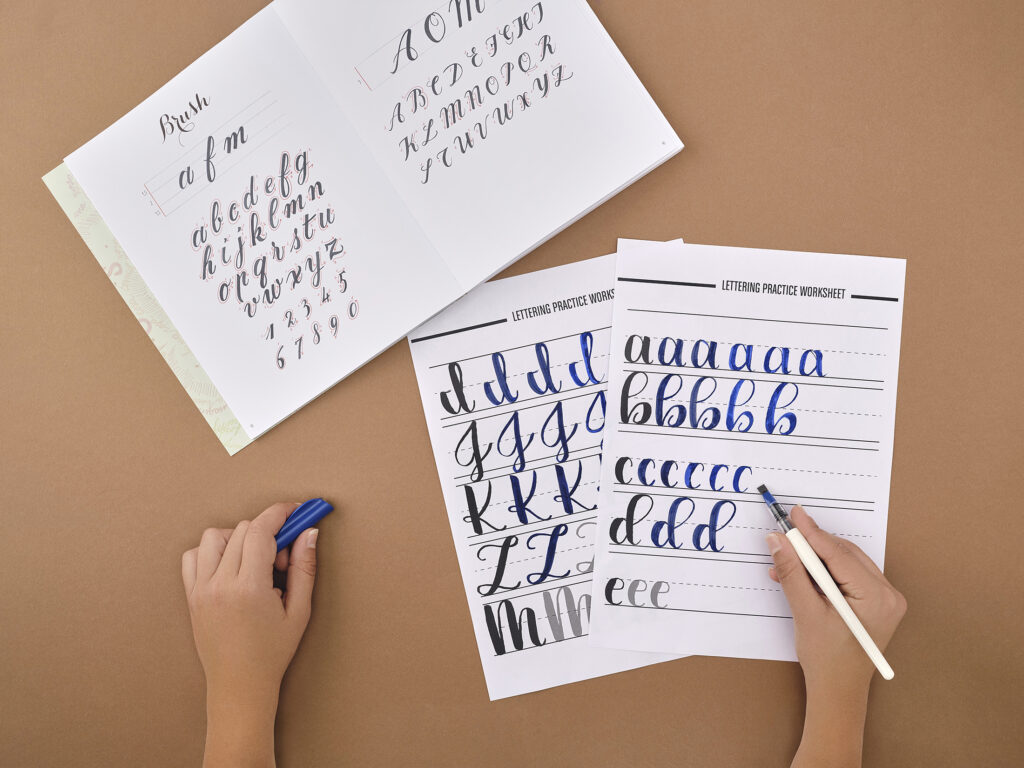 Brush
a f m
a b c d e f g
h i j k l m n
o p q r s t u
v w x y z
1 2 3 4 5
6 7 8 9 0
A O M
A B C D E F G H I
K L M N O P Q R
S T U V W X Y Z
LETTERING PRACTICE
d d d d
J J J J
K K K
L L L
M M M
LETTERING PRACTICE WORKSHEET
a a a a a a
b b b b b
c c c c c c
d d d
e e e